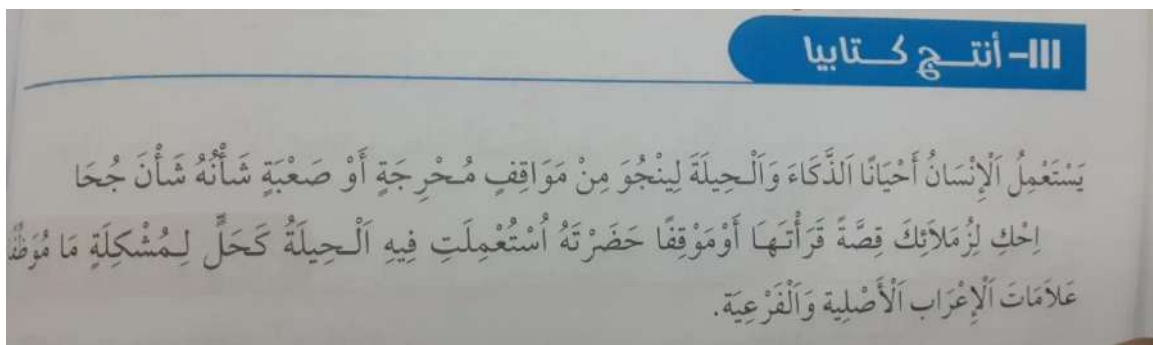 III- أنتــج كــتابيا
يَسْتَعْمِلُ اَلْإِنْسَانُ أَحْيَانًا اَلذَّكَاءَ وَاَلْـحِيلَةَ لِيَنْجُوَ مِنْ مَوَاقِفٍ مُـحْرِجَةٍ أَوْ صَعْبَةٍ شَأْنُهُ شَأْنَ جُحَا
اِحْكِ لِزُمَلاَئِكَ قِصَّةً قَرَأْتَـهَا أَوْمَوْقِفًا حَضَرْتَهُ اُسْتُعْمِلَتِ فِيهِ اَلْـحِيلَةُ كَحَلٍّ لِـمُشْكِلَةٍ مَا مُوَظِّفًا
عَلاَمَاتَ اَلْإِعْرَاب اَلْأَصْلِية وَاَلْفَرْعِيَة.